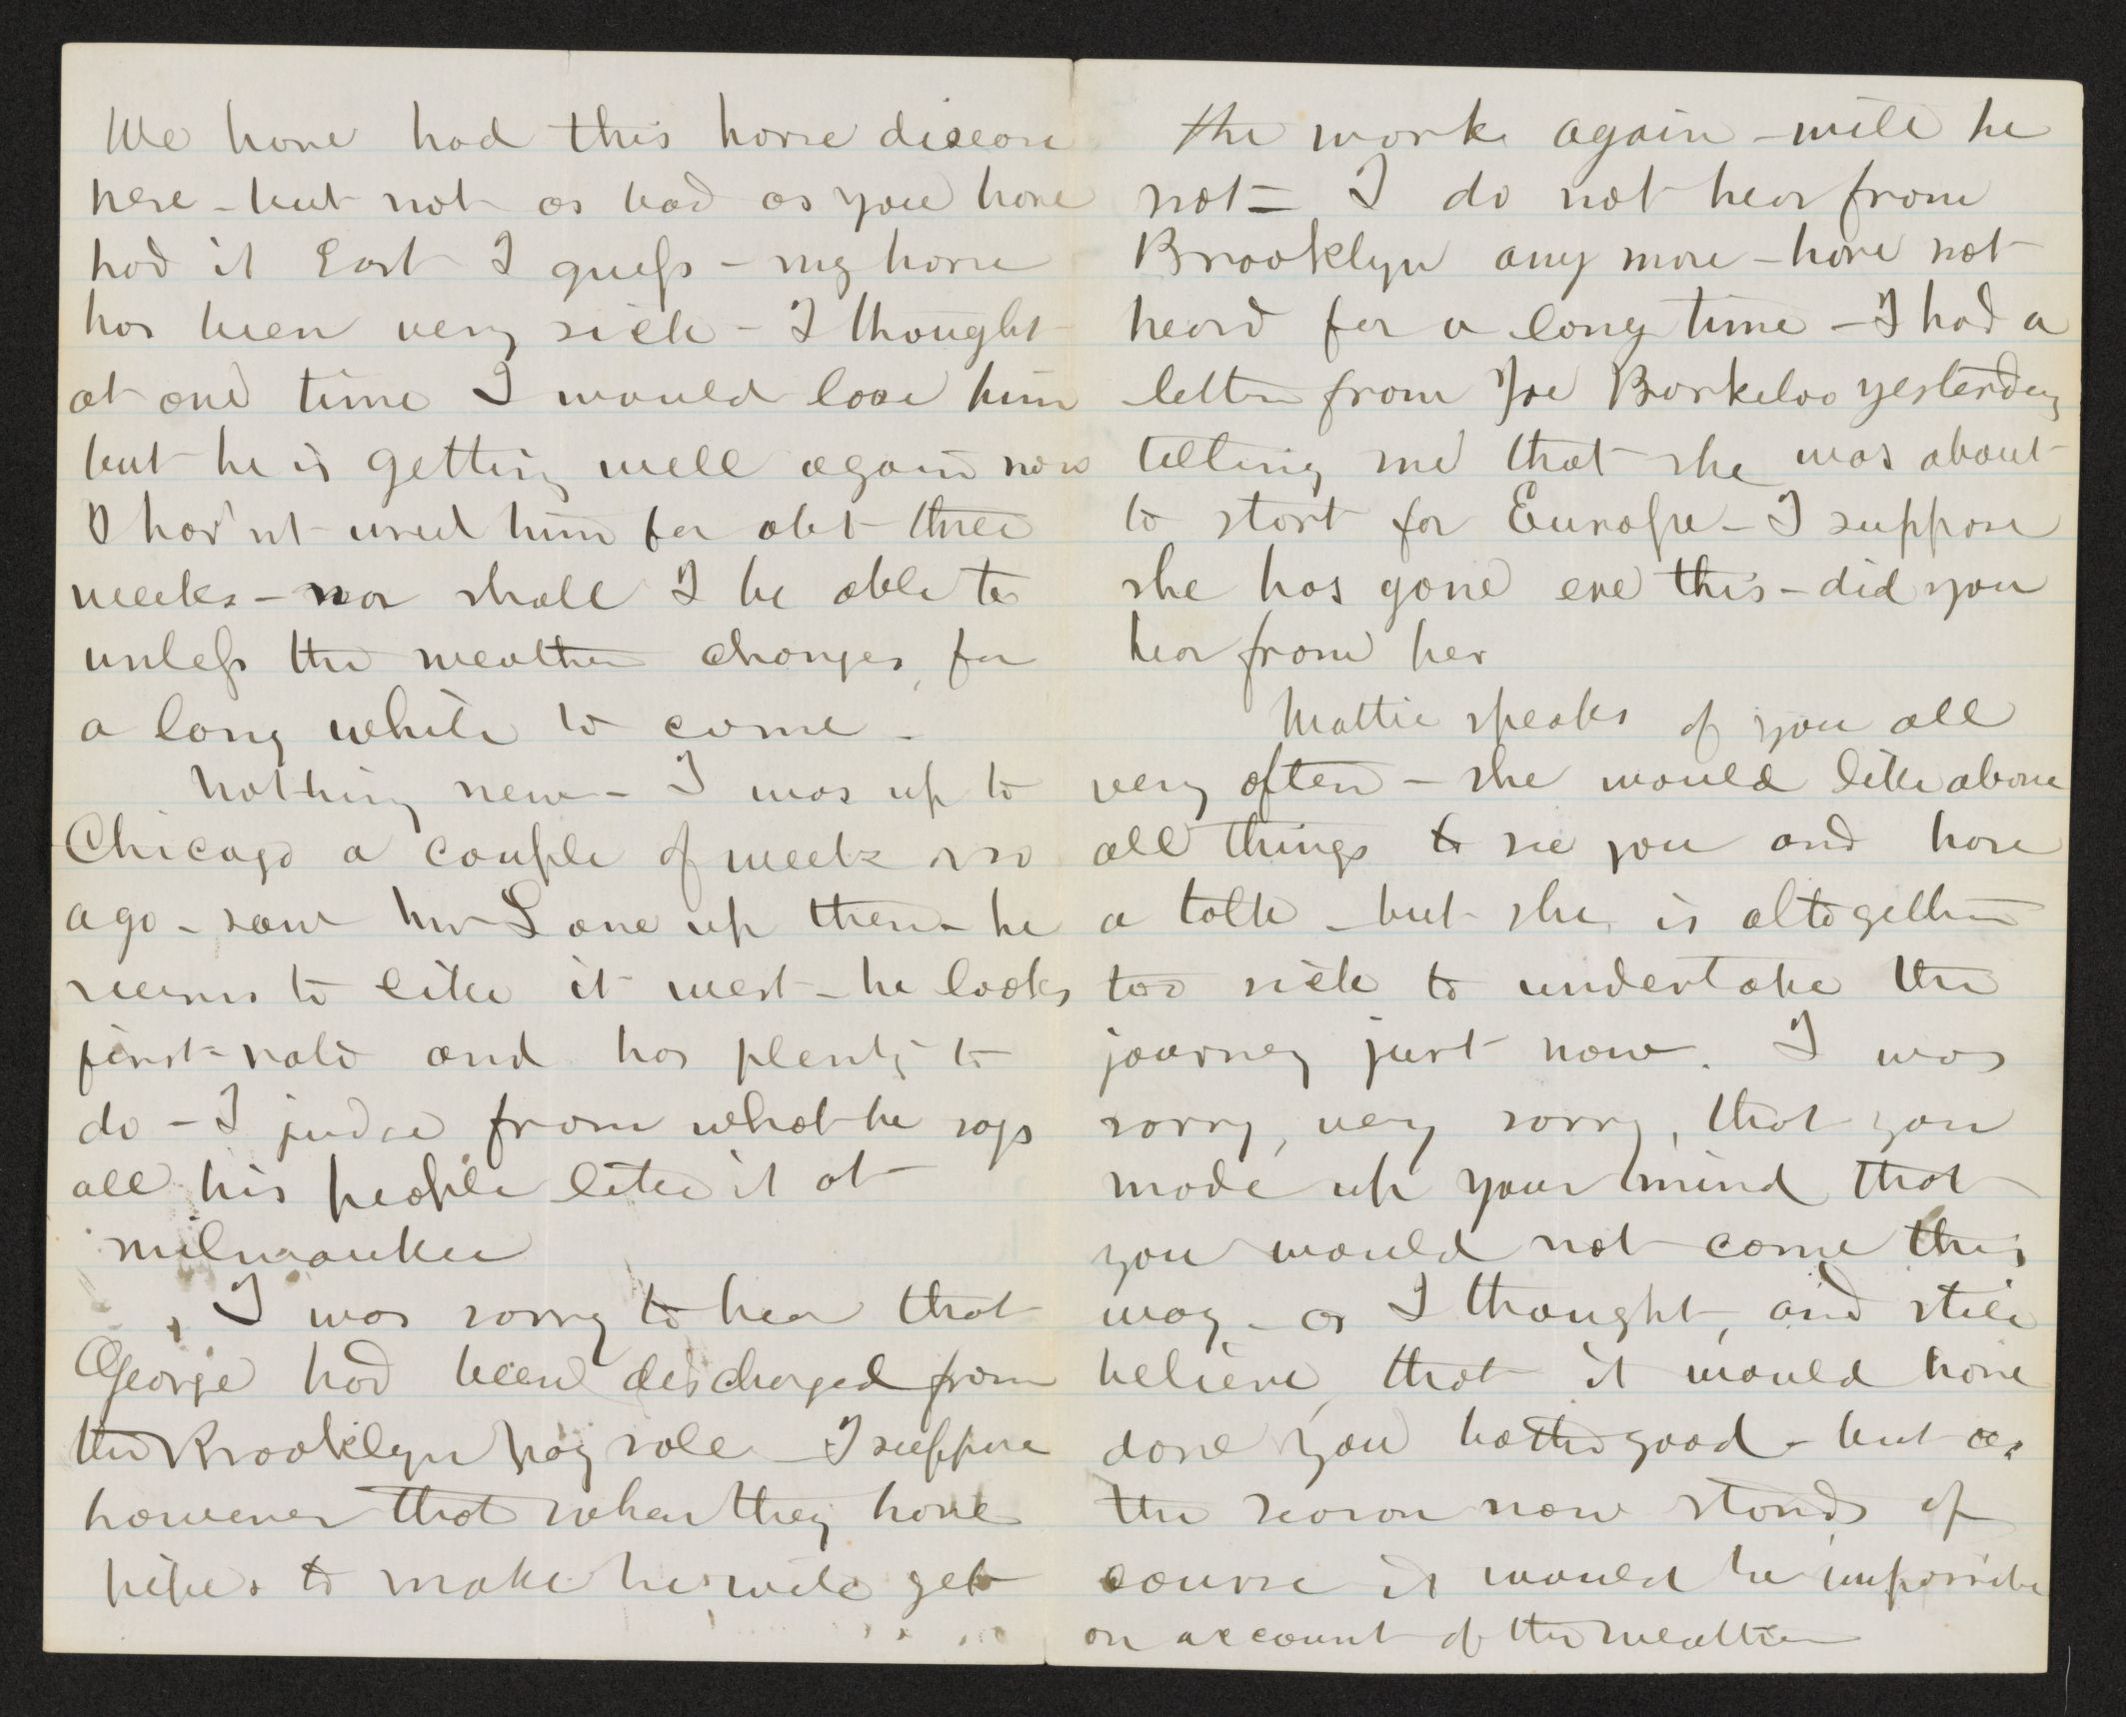 We have had this horse disease
here - but not as bad as you have
had it East I guess - my horse
has been very sick - I thought
at one time I would lose him
but he is getting well again now
I hav'nt used him for abt three
weeks - nor shall I be able to
unless the weather changes, for
a long while to come -
Nothing new - I was up to
Chicago a couple of weeks or so
ago - saw Mr Lane up there - he
seems to like it west - he looks
first-rate and has plenty to
do - I judge from what he says
all his people like it at
Milwaukee
I was sorry to hear that
George had been discharged from
the Brooklyn pay role - I suppose
however that when they have
pipes to make he will get
the work again - will he
not - I do not hear from
Brooklyn any more - have not
heard for a long time - I had a
letter from Joe Barkeloo yesterday
telling me that she was about
to start for Europe - I suppose
she has gone ere this - did you
hear from her
Mattie speaks of you all
very often - she would like above
all things to see you and have
a talk - but she is altogether
too sick to undertake the
journey just now. I was
sorry, very sorry, that you
made up your mind that
you would not come this
way - as I thought, and still
believe, that it would have
done you both good - but as
the season now stands of
course it would be impossible
on account of the weather